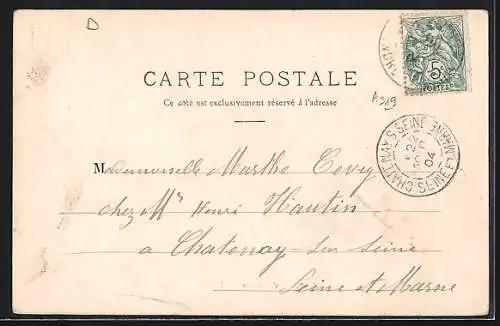 D
5
POSTES
CARTE POSTALE
Ce côté est exclusivement réservé à l'adresse
A319
CHATENAY S. SEINE
04
SEINE ET MARNE
Mademoiselle Marthe
chez Mr Henri Hautin
a Chatenay sur Seine
Seine et Marne